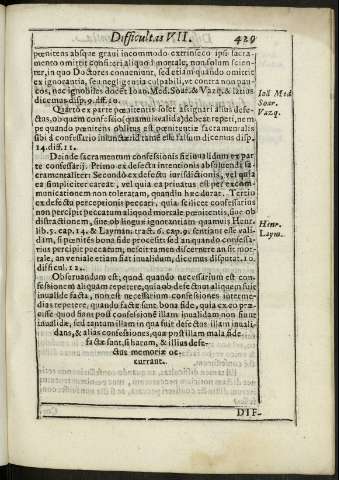 Difficultas VII. 429
pœnitens absque graui incommodo extrinseco ipsi sacra-
mento omittit confiteri aliquod mortale, non solum scien-
ter, in quo Doctores conueniunt, sed etiam quando omittit
ex ignorantia, seu negligentia culpabili, vt contra non pau-
cos, nec ignobiles docet Ioan. Med. Soar. & Vazq. & latius
dicemus disp. 9. diff. 10.
Ioã Med
Soar.
Vazq.
Quarto ex parte pœnitentis solet assignari alius defe-
ctus, ob quem confessio (quamuis valida) debeat repeti, nem-
pe quando pœnitens oblitus est pœnitentiæ sacramentalis
sibi à confessario iniunctæ id tamen esse falsum dicimus disp.
14. diff. 11.
Deinde sacramentum confessionis fit inualidum ex par
te confessarij. Primo ex defectu intentionis absoluendi sa-
cramentaliter: Secundo ex defectu iurisdictionis, vel quia
ea simpliciter careat, vel quia ea priuatus est per excom-
municationem non toleratam, quando hæc dorat. Tertio
ex defectu perceptionis peccati, quia scilicet confessarius
non percipit peccatum aliquod mortale pœnitentis, siue ob
distractionem, siue ob linguæ ignorantiam quamuis Henr.
lib. 5. cap. 14. & Layman. tract. 6. cap. 9. sentiant esse vali-
dam, si pœnitens bona fide processit sed an quando confessa-
rius percipit peccatum, nescit tamen discernere an sit mor-
tale, an veniale etiam fiat inualidum, dicemus disputat. 10.
difficul. 12.
Henr.
Laym.
Obseruandum est, quod quando necessarium est con-
fessionem aliquam repetere, quia ob defectum aliquem fuit
inualide facta, non est necessarium confessiones interme-
dias repetere, quando factæ sunt bona fide, quia ex eo præ-
cisse quod fiant post confessionẽ illam inualidam non sunt
inualidæ, sed tantum illam in qua fuit defectus illam inuali-
dans, & alias confessiones, quæ post illam mala fide
factæ sunt, si harum, & illius defe-
ctus memoriæ oc-
currant.
DIF-